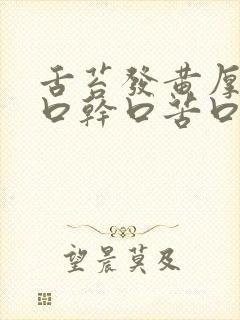 舌苔發黃厚
口幹口苦口
望晨莫及